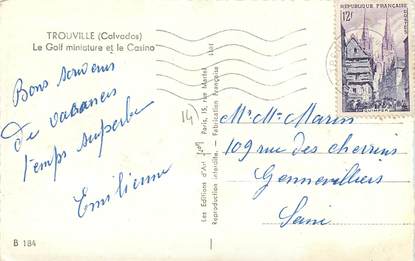 TROUVILLE (Calvados)
Le Golf miniature et le Casino
Bons souvenirs
De vacances
temps superbe
Emilienne
B 184
14)
Les Editions d'Art Paris, 15, rue Martel
Reproduction interdite. - Fabrication Française
REPUBLIQUE FRANÇAISE
12F
QUIMPER
Mr Me Marin
109 rue des chevrins
Gennevilliers
Seine